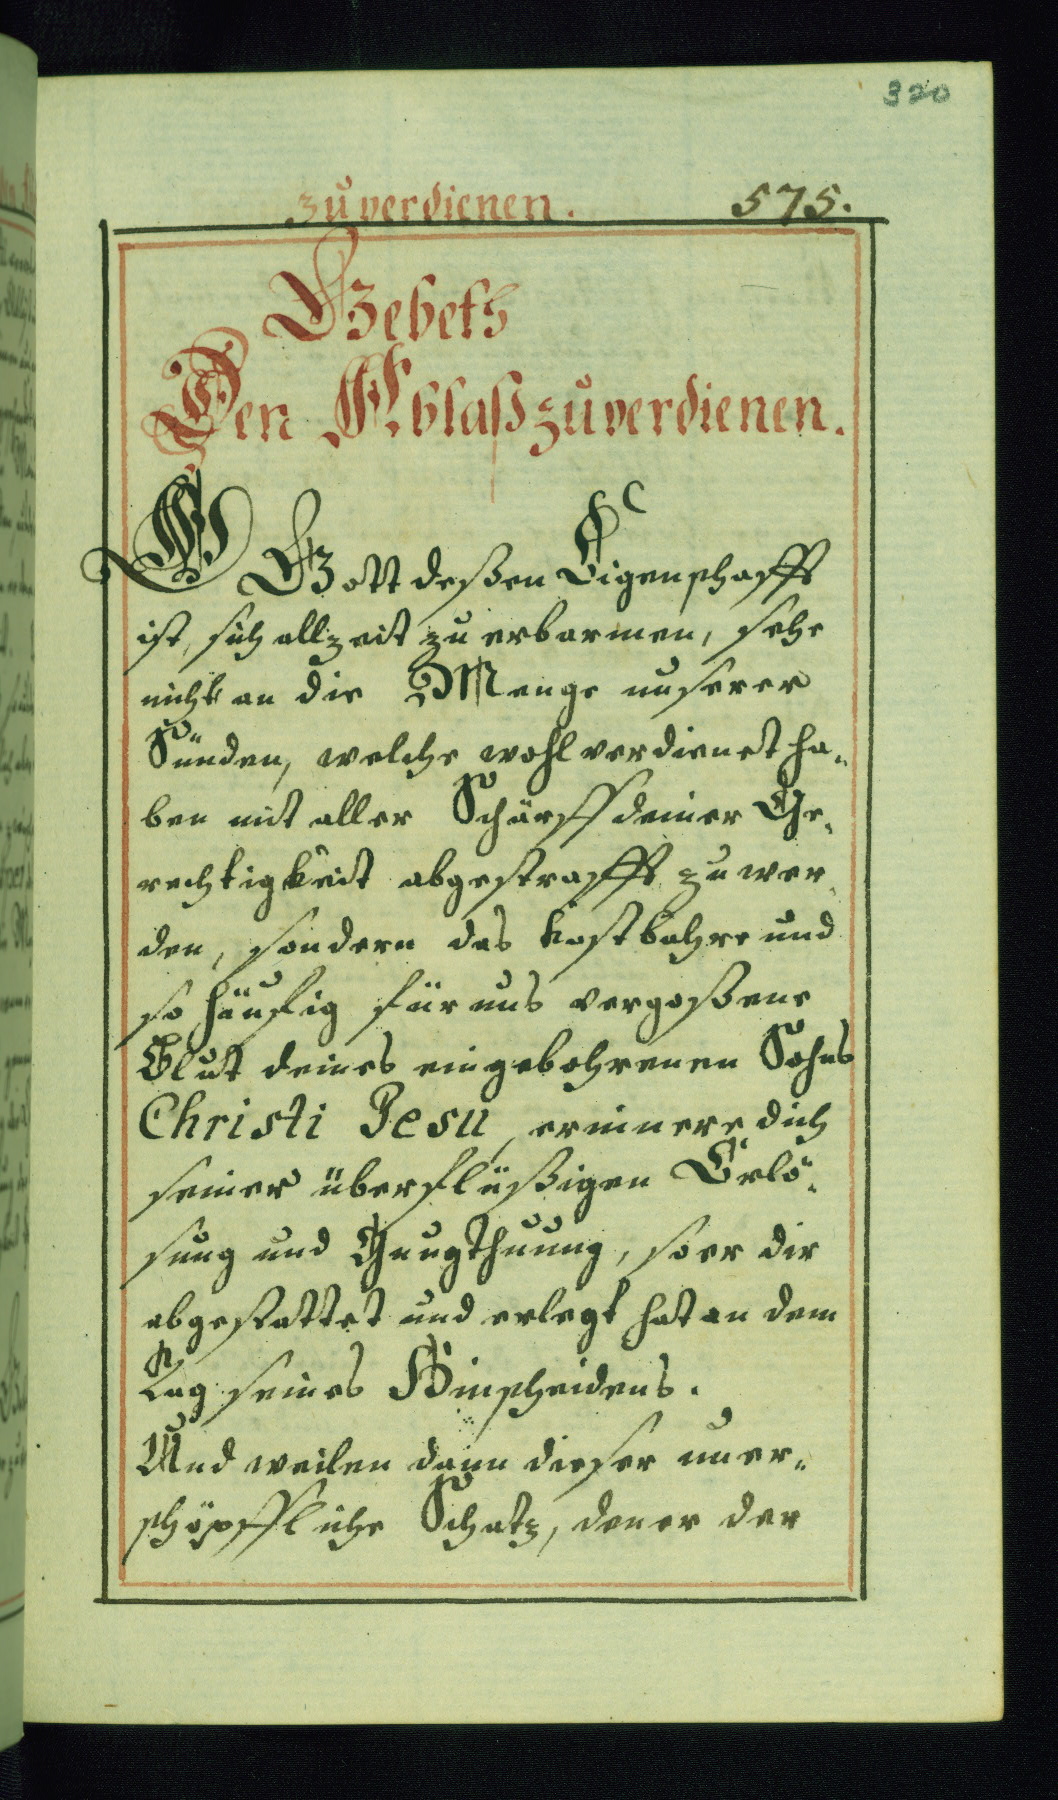 320
zu verdienen. 575.
Gebeth
Den Ablaß zu verdienen.
O Gott deßen Eigenschafft
ist, sich allzeit zu erbarmen, sehe
nicht an die Menge unserer
Sünden, welche wohl verdienet ha-
ben mit aller Schärff deiner Ge-
rechtigkeit abgestrafft zu wer-
den, sondern das kostbahre und
so häufig für uns vergoßene
Blut deines eingebohrenen Sohns
Christi Jesu, erinnere dich
seiner überflüßigen Erlö-
sung und Genugthuung, so er dir
abgestattet und erlegt hat an dem
Tag seines Hinscheidens.
Und weilen dann dieser uner-
schöpffliche Schatz, den er der